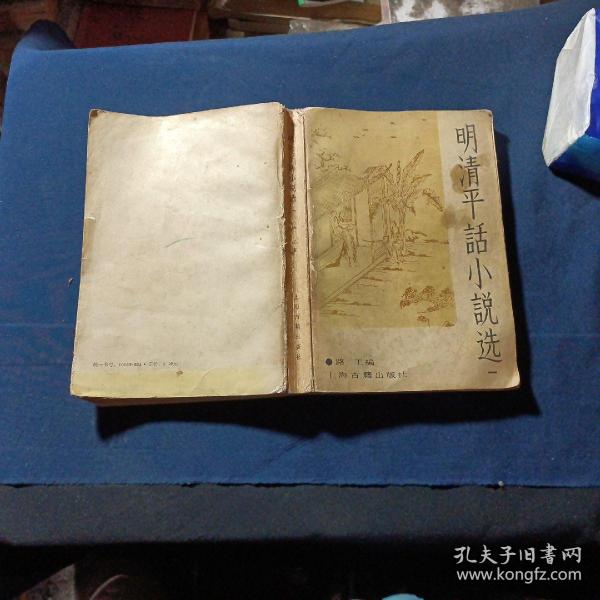 明清平話小説选
一
●路工编
上海古籍出版社
上海古籍出版社
孔夫子旧书网
www.kongfz.com